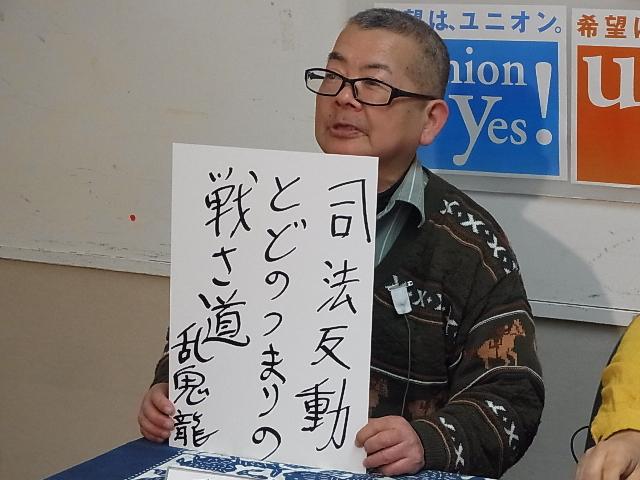 希望は、ユニオン。
union
yes!
希望は
u
司法反動
とどのつまりの
戦さ道
乱鬼龍